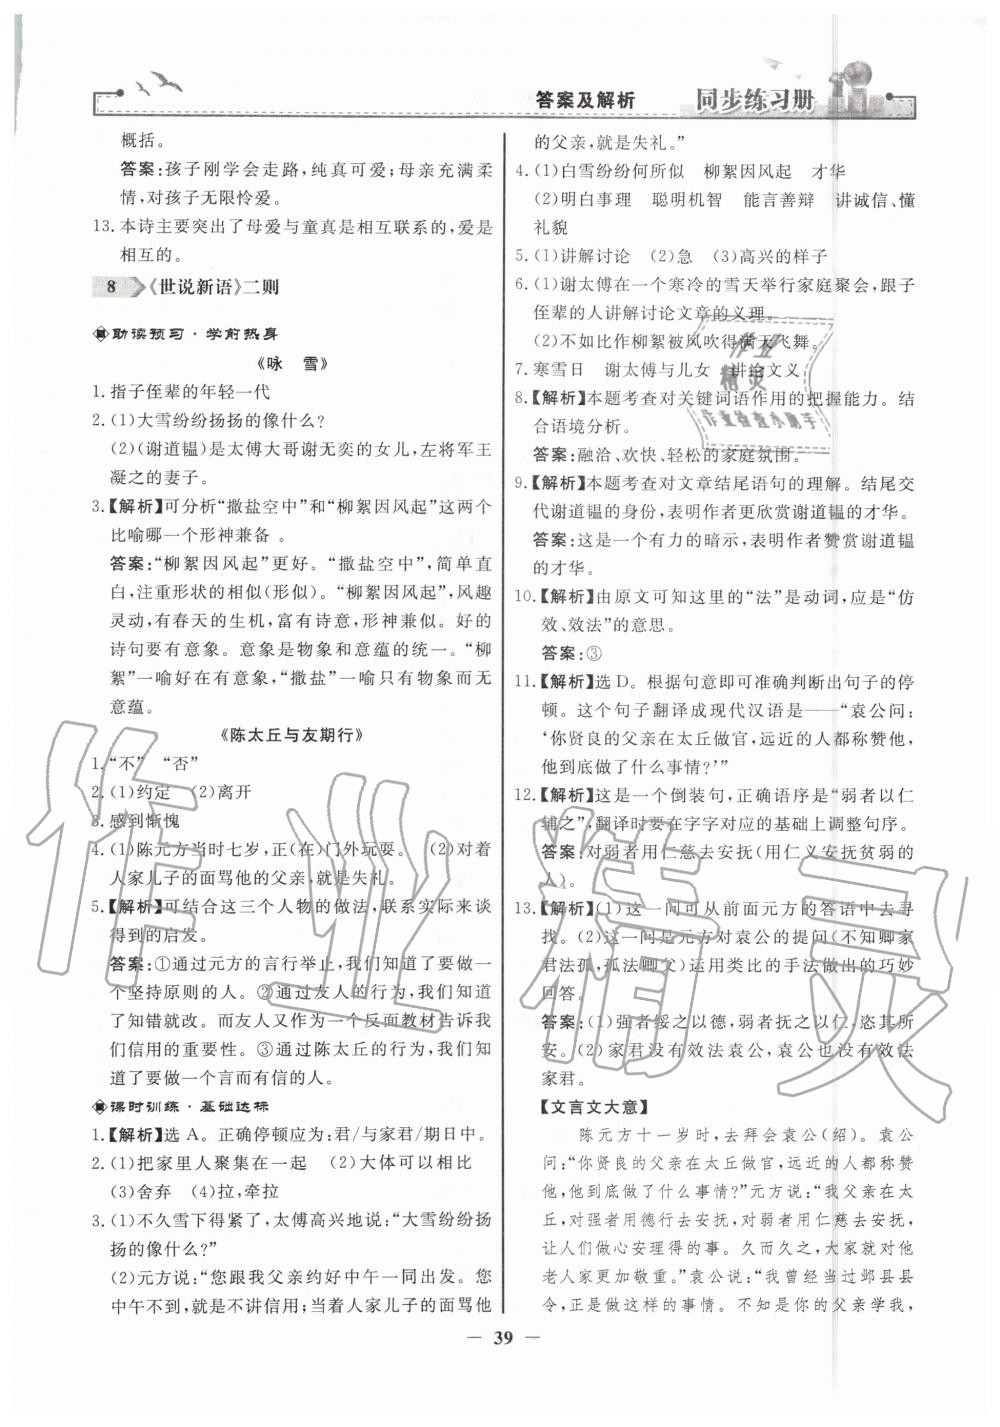 答案及解析
同步练习册
概括。
答案:孩子刚学会走路,纯真可爱;母亲充满柔
情,对孩子无限怜爱。
13. 本诗主要突出了母爱与童真是相互联系的,爱是
相互的。
8 《世说新语》二则
助读预习·学前热身
《咏 雪》
1. 指子侄辈的年轻一代
2. (1)大雪纷纷扬扬的像什么?
(2)(谢道韫)是太傅大哥谢无奕的女儿,左将军王
凝之的妻子。
3. 【解析】可分析“撒盐空中”和“柳絮因风起”这两个
比喻哪一个形神兼备 。
答案:“柳絮因风起”更好。“撒盐空中”,简单直
白,注重形状的相似(形似)。“柳絮因风起”,风趣
灵动,有春天的生机,富有诗意,形神兼似。好的
诗句要有意象。意象是物象和意蕴的统一。“柳
絮”一喻好在有意象,“撒盐”一喻只有物象而无
意蕴。
《陈太丘与友期行》
1. “不” “否”
2. (1)约定 (2)离开
3. 感到惭愧
4. (1)陈元方当时七岁,正(在)门外玩耍。 (2)对着
人家儿子的面骂他的父亲,就是失礼。
5. 【解析】可结合这三个人物的做法,联系实际来谈
得到的启发。
答案:①通过元方的言行举止,我们知道了要做一
个坚持原则的人。②通过友人的行为,我们知道
了知错就改。而友人又作为一个反面教材告诉我
们信用的重要性。③通过陈太丘的行为,我们知
道了要做一个言而有信的人。
课时训练·基础达标
1. 【解析】选 A。正确停顿应为:君/与家君/期日中。
2. (1)把家里人聚集在一起 (2)大体可以相比
(3)舍弃 (4)拉,牵拉
3. (1)不久雪下得紧了,太傅高兴地说:“大雪纷纷扬
扬的像什么?”
(2)元方说:“您跟我父亲约好中午一同出发。您
中午不到,就是不讲信用;当着人家儿子的面骂他
的父亲,就是失礼。”
4. (1)白雪纷纷何所似 柳絮因风起 才华
(2)明白事理 聪明机智 能言善辩 讲诚信、懂
礼貌
5. (1)讲解讨论 (2)急 (3)高兴的样子
6. (1)谢太傅在一个寒冷的雪天举行家庭聚会,跟子
侄辈的人讲解讨论文章的义理。
(2)不如比作柳絮被风吹得满天飞舞。
7. 寒雪日 谢太傅与儿女 讲论文义
8. 【解析】本题考查对关键词语作用的把握能力。结
合语境分析。
答案:融洽、欢快、轻松的家庭氛围。
9. 【解析】本题考查对文章结尾语句的理解。结尾交
代谢道韫的身份,表明作者更欣赏谢道韫的才华。
答案:这是一个有力的暗示,表明作者赞赏谢道韫
的才华。
10. 【解析】由原文可知这里的“法”是动词,应是“仿
效、效法”的意思。
答案:③
11. 【解析】选 D。根据句意即可准确判断出句子的停
顿。这个句子翻译成现代汉语是——“袁公问:
‘你贤良的父亲在太丘做官,远近的人都称赞他,
他到底做了什么事情?’”
12. 【解析】这是一个倒装句,正确语序是“弱者以仁
辅之”,翻译时要在字字对应的基础上调整句序。
答案:对弱者用仁慈去安抚(用仁义安抚贫弱的
人)。
13. 【解析】(1)这一问可从前面元方的答语中去寻
找。(2)这一问是元方对袁公的提问(不知卿家
君法孤,孤法卿父)运用类比的手法做出的巧妙
回答。
答案:(1)强者绥之以德,弱者抚之以仁,恣其所
安。(2)家君没有效法袁公,袁公也没有效法
家君。
【文言文大意】
陈元方十一岁时,去拜会袁公(绍)。袁公
问:“你贤良的父亲在太丘做官,远近的人都称赞
他,他到底做了什么事情?”元方说:“我父亲在太
丘,对强者用德行去安抚,对弱者用仁慈去安抚,
让人们做心安理得的事。久而久之,大家就对他
老人家更加敬重。”袁公说:“我曾经当过邺县县
令,正是做这样的事情。不知是你的父亲学我,
— 39 —
作业
精灵
作业检查小助手
作业精灵